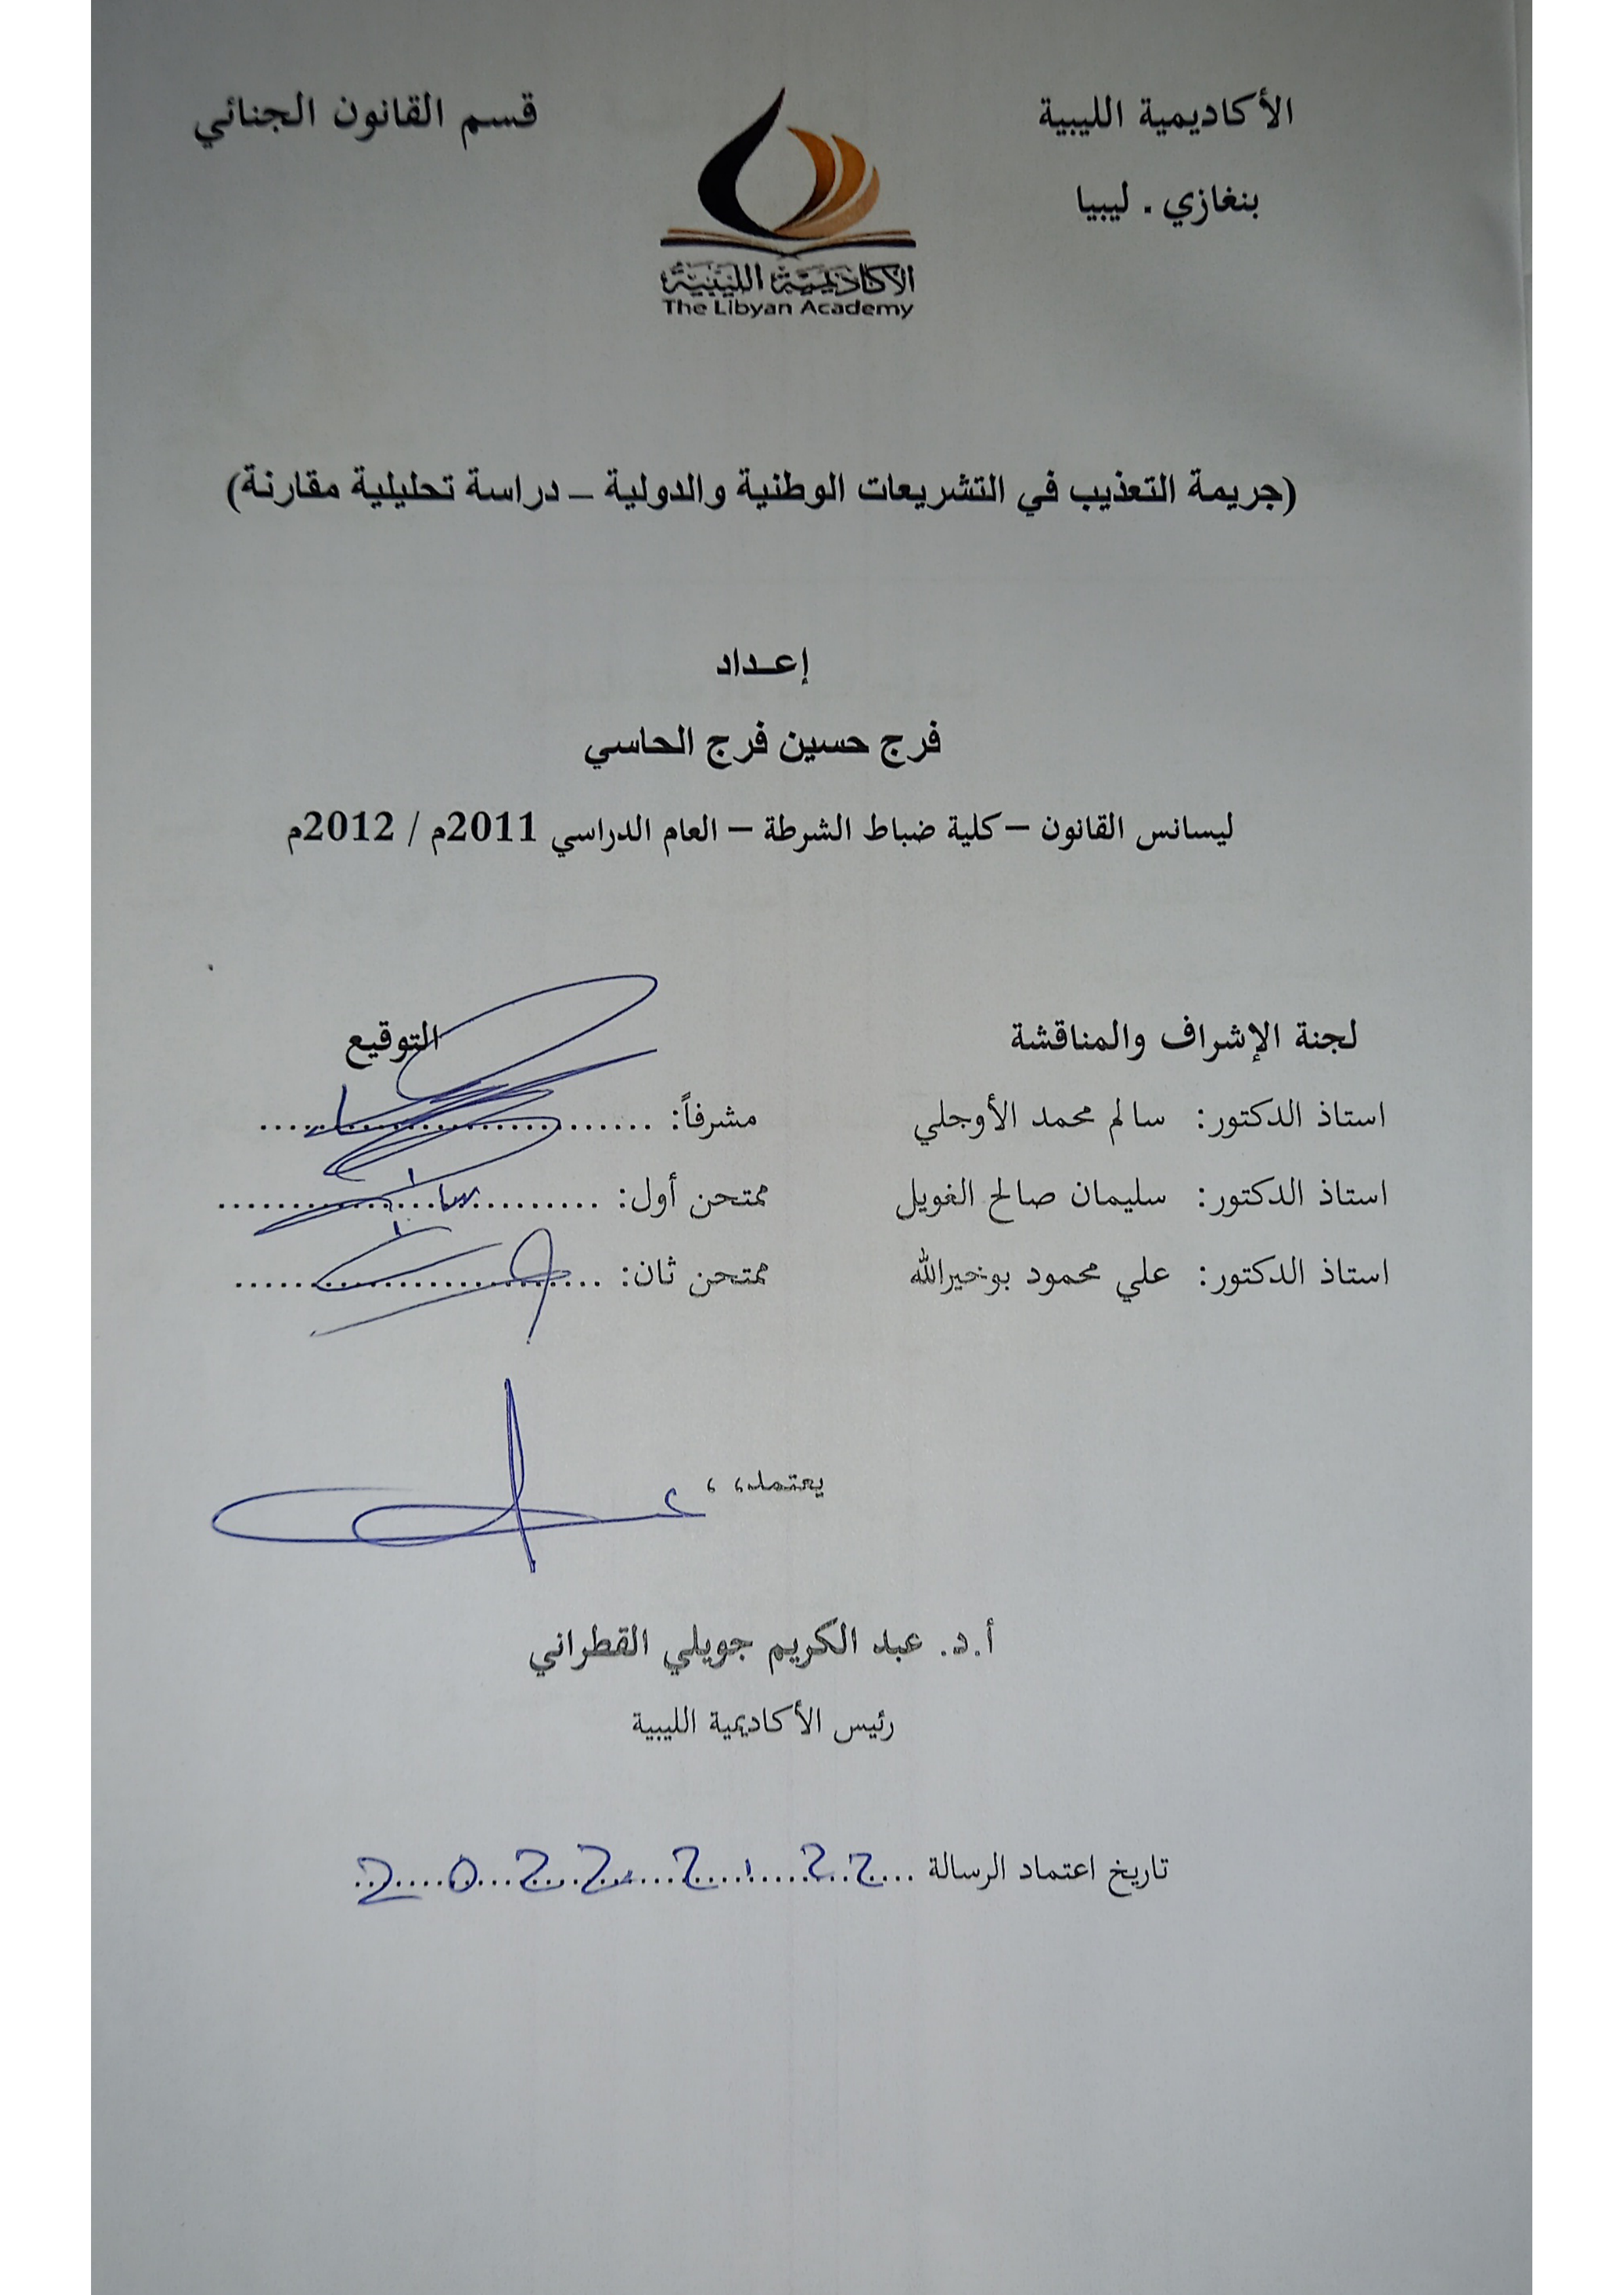 الأكاديمية الليبية
بنغازي . ليبيا
قسم القانون الجنائي
الأكاديمية الليبية
The Libyan Academy
(جريمة التعذيب في التشريعات الوطنية والدولية – دراسة تحليلية مقارنة)
إعـداد
فرج حسين فرج الحاسي
ليسانس القانون – كلية ضباط الشرطة – العام الدراسي 2011م / 2012م
لجنة الإشراف والمناقشة التوقيع
استاذ الدكتور: سالم محمد الأوجلي مشرفاً: ..........................
استاذ الدكتور: سليمان صالح الغويل ممتحن أول: ..........................
استاذ الدكتور: علي محمود بوخيرالله ممتحن ثان: ..........................
يعتمد، ،
أ.د. عبد الكريم جويلي القطراني
رئيس الأكاديمية الليبية
تاريخ اعتماد الرسالة